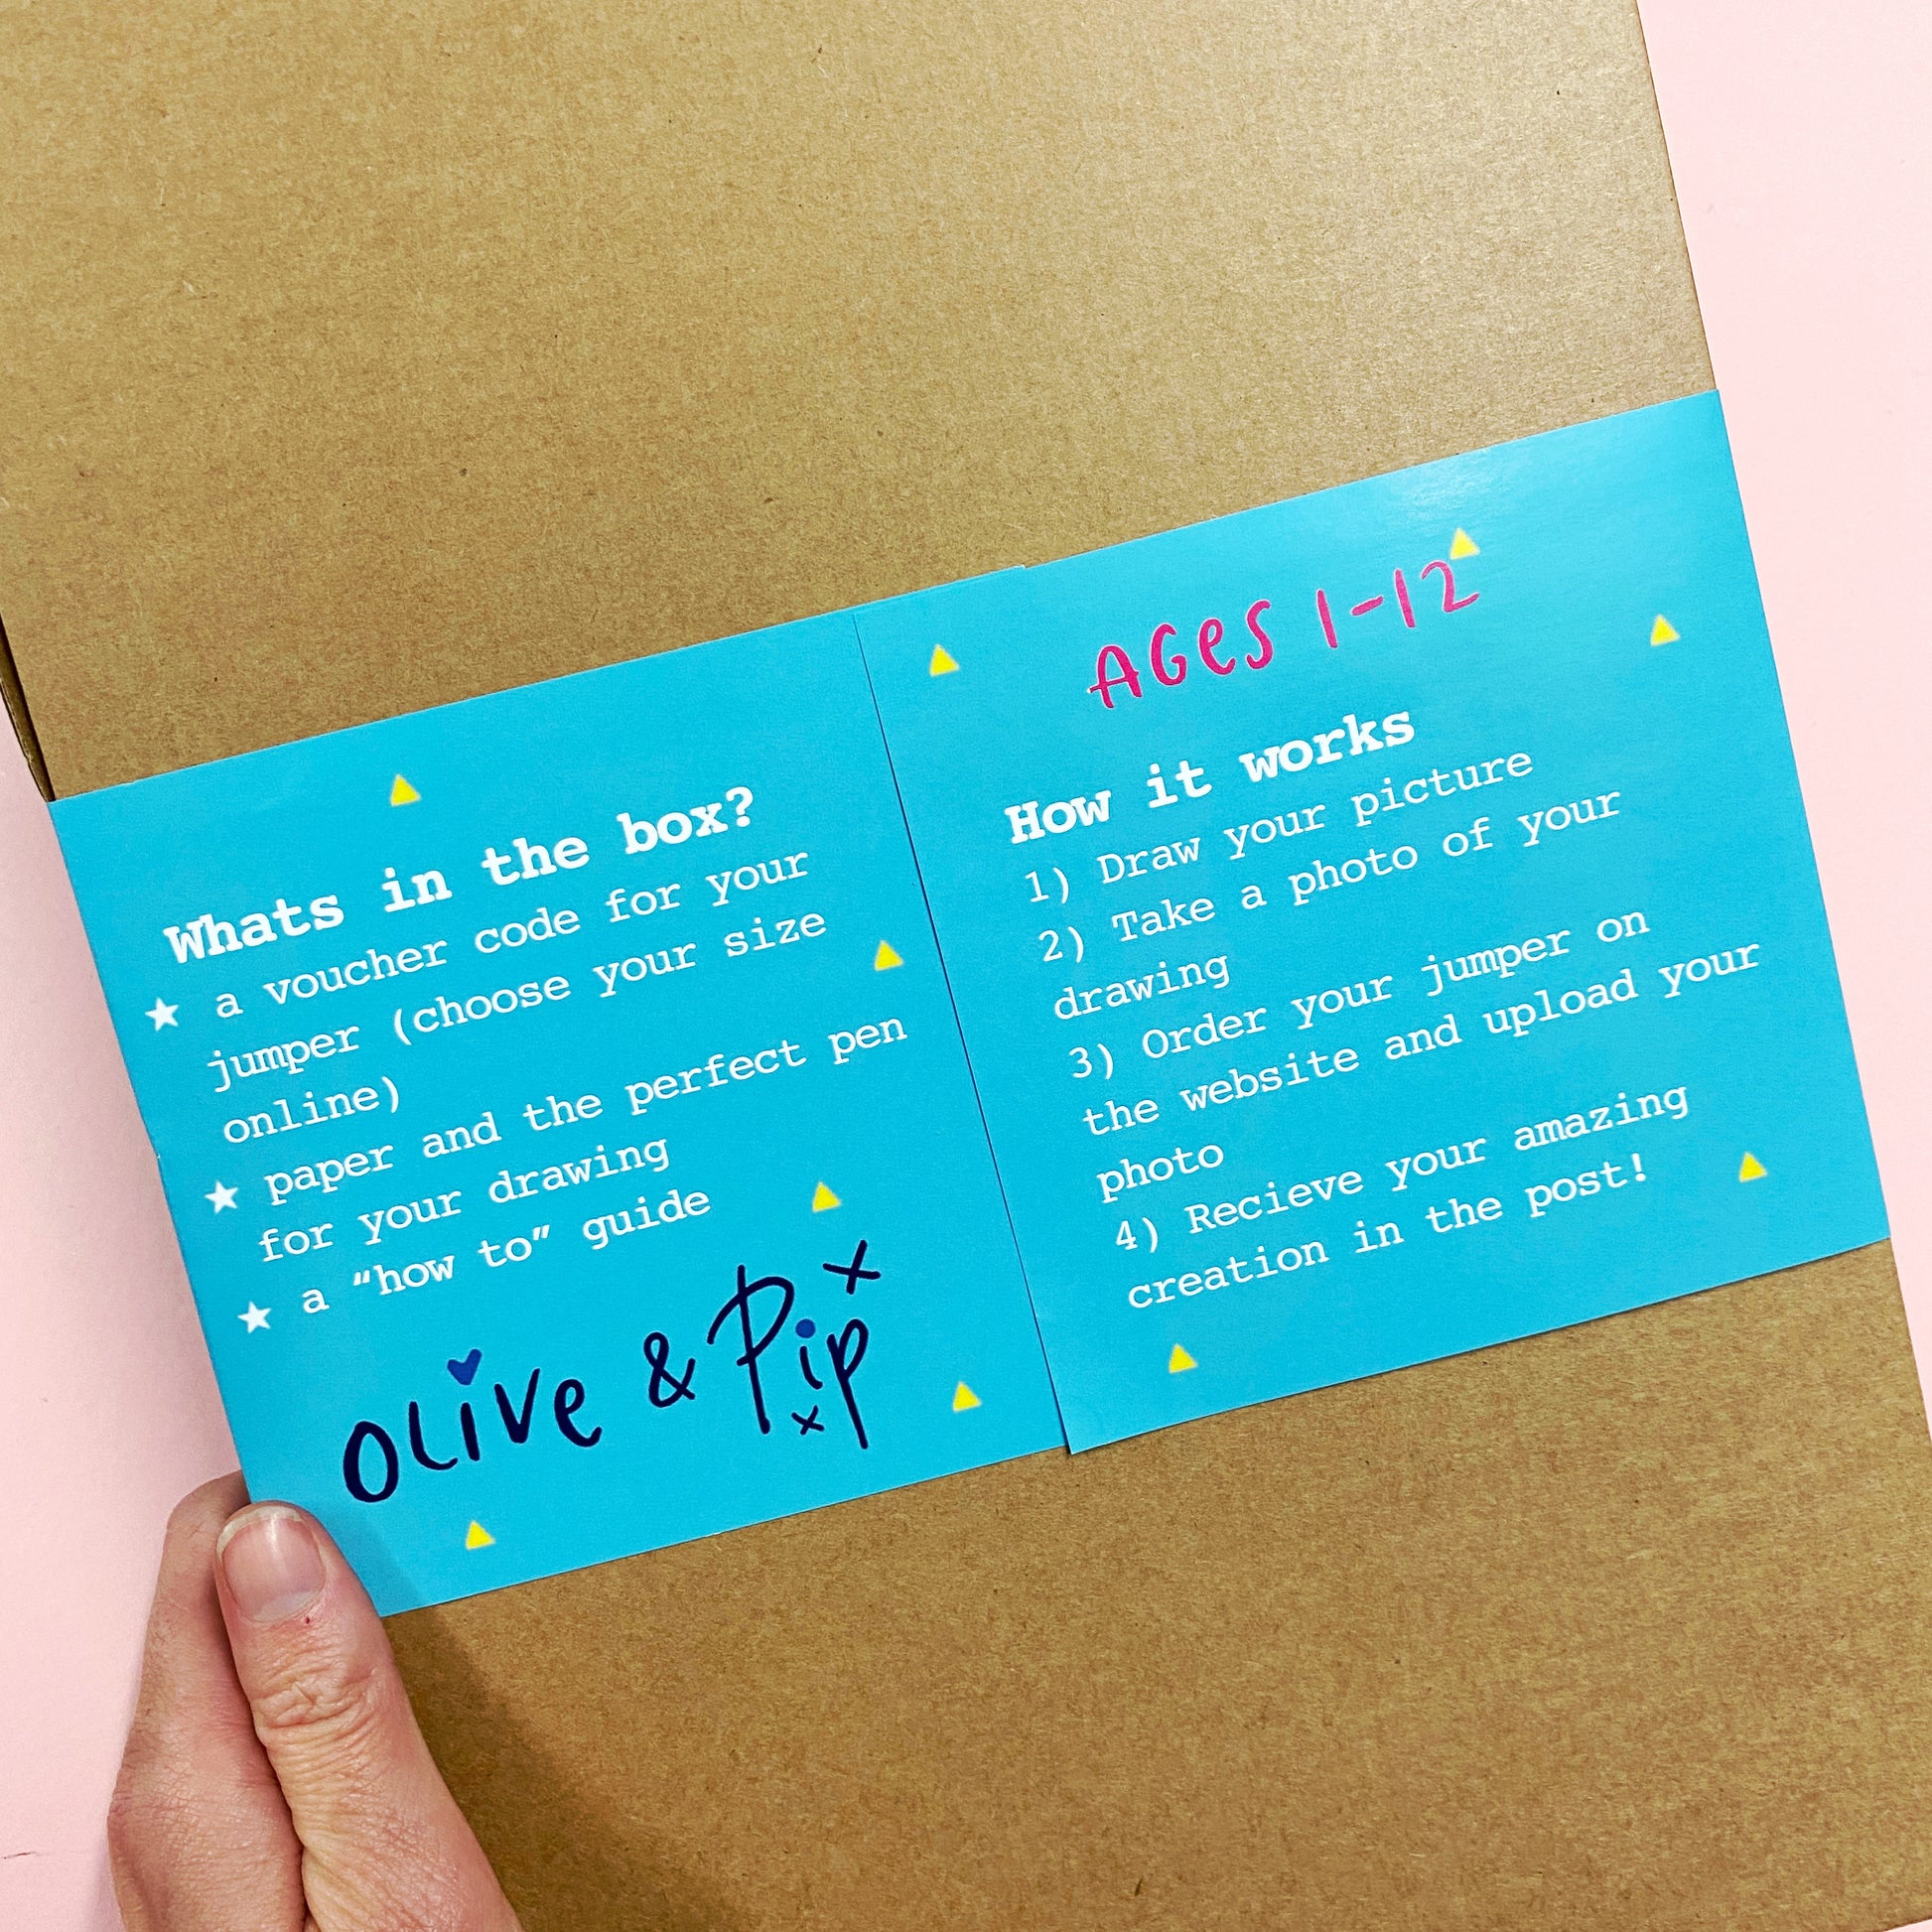 Whats in the box?
★ a voucher code for your
jumper (choose your size
online)
★ paper and the perfect pen
for your drawing
★ a “how to” guide
Olive & Pip
AGES 1-12
How it works
1) Draw your picture
2) Take a photo of your
drawing
3) Order your jumper on
the website and upload your
photo
4) Recieve your amazing
creation in the post!